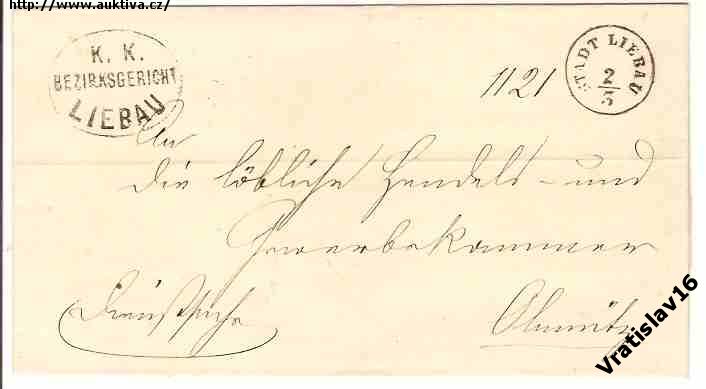 http://www.auktiva.cz/
K. K.
BEZIRKSGERICHT
LIEBAU
STADT LIEBAU
2/3
1121
An
die löbliche Handels- und
Gewerbekammer
Dienstsache
Olmütz
Vratislav16